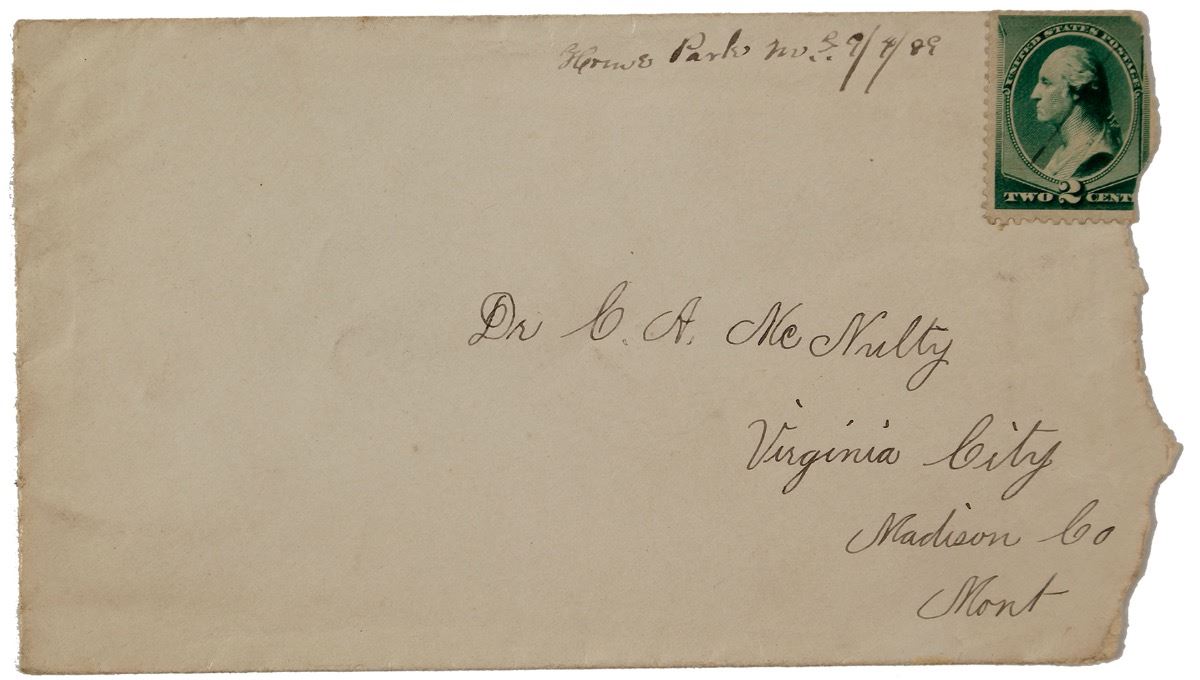 Home Park M.T. 9/4/89
UNITED STATES POSTAGE
TWO 2 CENT
Dr C. A. McNulty
Virginia City
Madison Co
Mont